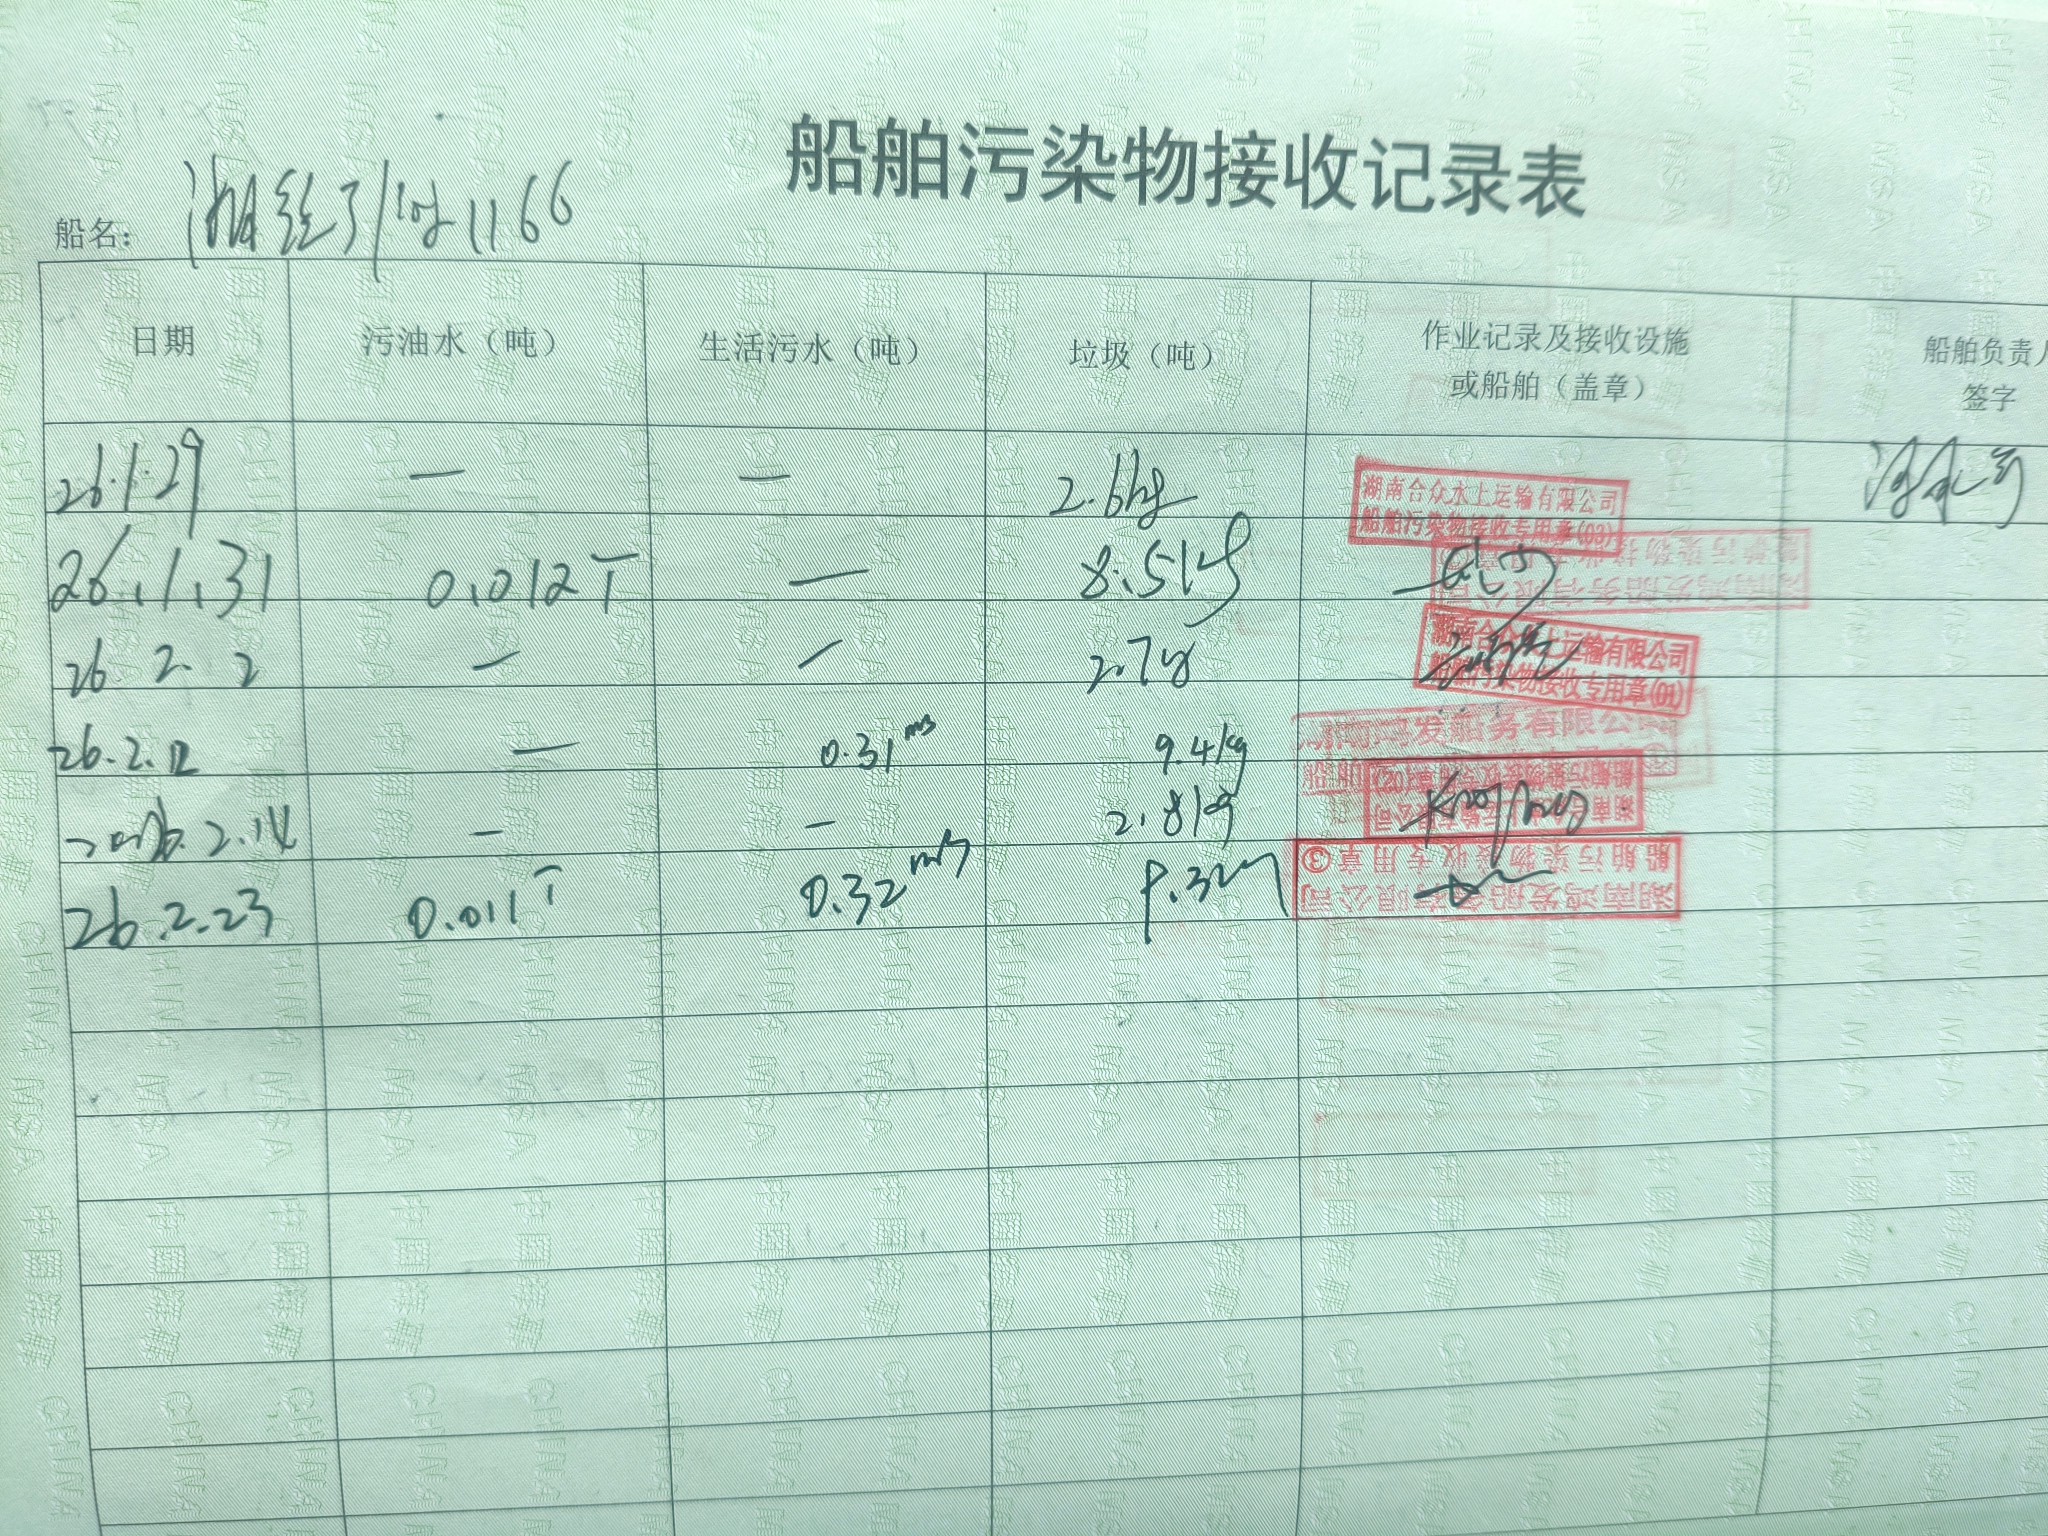 船舶污染物接收记录表
船名: 1166
日期 污油水（吨） 生活污水（吨） 垃圾（吨） 作业记录及接收设施或船舶（盖章） 船舶负责人签字
26.1.29 — — 2.6kg 湖南合众水上运输有限公司 船舶污染物接收专用章(03)
26.1.31 0.012T — 8.5kg 湖南鸿发船务有限公司 船舶污染物接收专用章
26.2.2 — — 2.7kg 湖南合众水上运输有限公司 船舶污染物接收专用章(01)
26.2.12 — 0.31m3 9.4kg 湖南鸿发船务有限公司
2026.2.14 — — 2.8kg 船舶污染物接收专用章(02)
26.2.23 0.011T 0.32m3 湖南鸿发船务有限公司 船舶污染物接收专用章③